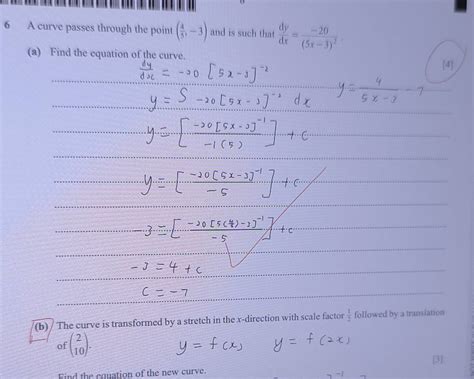 6 A curve passes through the point (4/5, −3) and is such that dy/dx = −20/(5x−3)².
(a) Find the equation of the curve.
[4]
dy/dx = −20 [5x−3]⁻²
y = S −20[5x−3]⁻² dx
y = 4/(5x−3) − 7
y = [−20[5x−3]⁻¹/−1(5)] + c
y = [−20[5x−3]⁻¹/−5] + c
−3 = [−20[5(4)−3]⁻¹/−5] + c
−3 = 4 + c
C = −7
(b) The curve is transformed by a stretch in the x-direction with scale factor 1/2 followed by a translation
of (2 10).
y = f(x) y = f(2x)
Find the equation of the new curve.
[3]